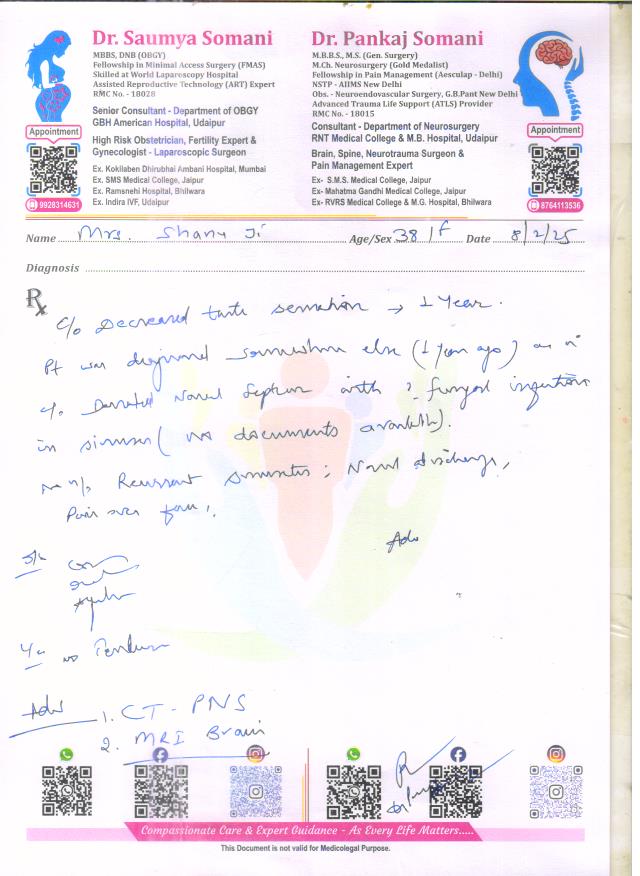 Dr. Saumya Somani
MBBS, DNB (OBGY)
Fellowship in Minimal Access Surgery (FMAS)
Skilled at World Laparoscopy Hospital
Assisted Reproductive Technology (ART) Expert
RMC No. - 18028
Senior Consultant - Department of OBGY
GBH American Hospital, Udaipur
High Risk Obstetrician, Fertility Expert &
Gynecologist - Laparoscopic Surgeon
Ex. Kokilaben Dhirubhai Ambani Hospital, Mumbai
Ex. SMS Medical College, Jaipur
Ex. Ramsnehi Hospital, Bhilwara
Ex. Indira IVF, Udaipur
Appointment
9928314631
Dr. Pankaj Somani
M.B.B.S., M.S. (Gen. Surgery)
M.Ch. Neurosurgery (Gold Medalist)
Fellowship in Pain Management (Aesculap - Delhi)
NSTP - AIIMS New Delhi
Obs. - Neuroendovascular Surgery, G.B.Pant New Delhi
Advanced Trauma Life Support (ATLS) Provider
RMC No. - 18015
Consultant - Department of Neurosurgery
RNT Medical College & M.B. Hospital, Udaipur
Brain, Spine, Neurotrauma Surgeon &
Pain Management Expert
Ex- S.M.S. Medical College, Jaipur
Ex- Mahatma Gandhi Medical College, Jaipur
Ex- RVRS Medical College & M.G. Hospital, Bhilwara
Appointment
8764113536
Name Mrs. Shanu Ji Age/Sex 38/f Date 8/2/25
Diagnosis
Rx
c/o Decreased taste sensation → 1 Year.
Pt was diagnosed somewhere else (1 year ago) as a
c/o Deviated Nasal Septum with ? fungal infection
in sinuses (no documents available).
Recurrent sinusitis; Nasal discharge,
Pain over face.
Adv
no Tenderness
Adv 1. CT - PNS
2. MRI Brain
Compassionate Care & Expert Guidance - As Every Life Matters.....
This Document is not valid for Medicolegal Purpose.